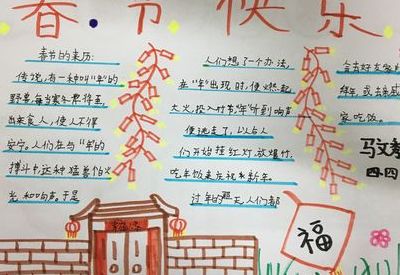 春节快乐
春节的来历:
传说,有一种叫"年"的
野兽,每当寒冬将至,
出来食人,使人不得
安宁,人们在与"年"的
搏斗中,这种猛兽怕火
光和响声,于是
人们想了一个办法,
在"年"出现时,便燃起
大火,投入竹节,"年"听到响声
便逃走了,以后人
们开始挂红灯,放爆竹,
吃年饭来庆祝新年。
过年的那天人们都
会
拜年
家吃饭。
马文
四.四
福